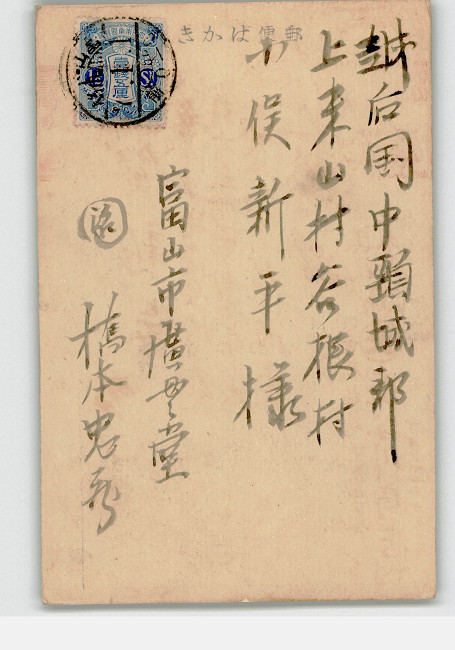 郵便はかき
越后国中頸城郡
上来山村谷根村
小俣新平様
富山市廣要堂
橋本忠